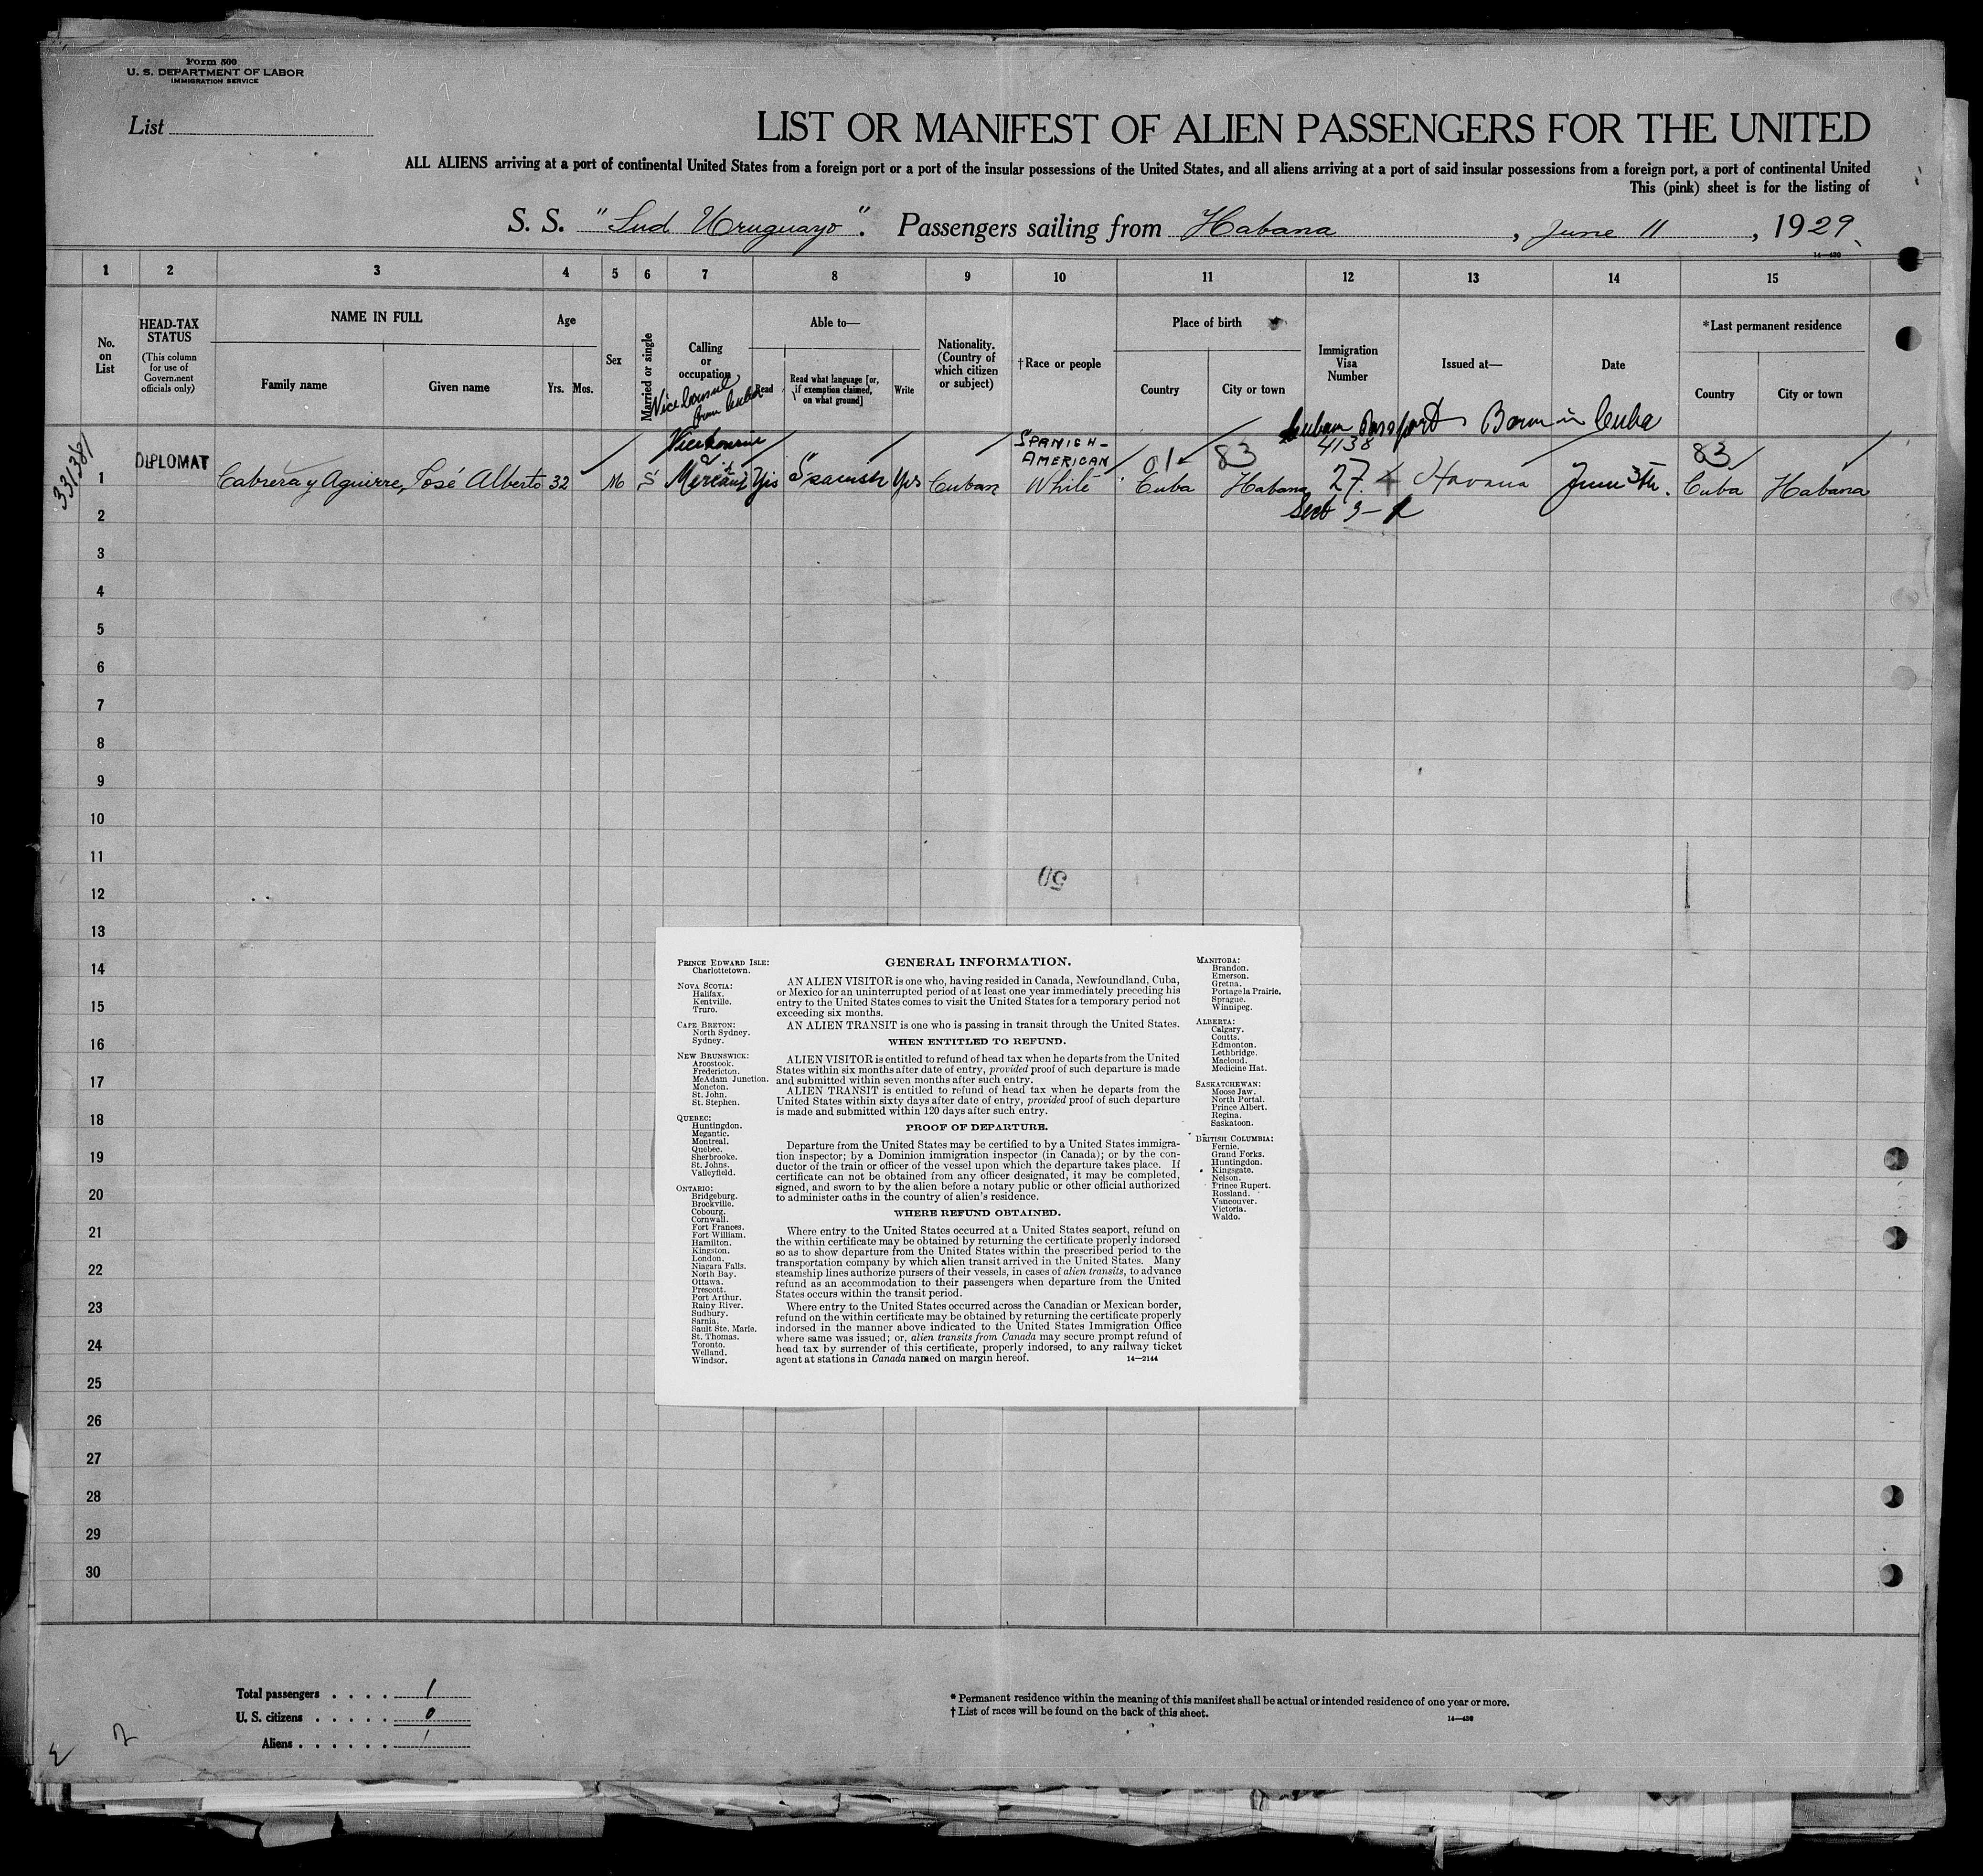 Form 500
U. S. DEPARTMENT OF LABOR
IMMIGRATION SERVICE
List
LIST OR MANIFEST OF ALIEN PASSENGERS FOR THE UNITED
ALL ALIENS arriving at a port of continental United States from a foreign port or a port of the insular possessions of the United States, and all aliens arriving at a port of said insular possessions from a foreign port, a port of continental United
This (pink) sheet is for the listing of
S. S. "Sud Uruguayo". Passengers sailing from Habana, June 11, 1929
14—430
1 2 3 4 5 6 7 8 9 10 11 12 13 14 15
No. on List
HEAD-TAX STATUS
(This column for use of Government officials only)
NAME IN FULL
Family name Given name
Age
Yrs. Mos.
Sex
Married or single
Calling or occupation
Vice Consul from Cuba
Able to—
Read
Read what language [or, if exemption claimed, on what ground]
Write
Nationality. (Country of which citizen or subject)
†Race or people
Place of birth
Country City or town
Immigration Visa Number
Issued at—
Date
*Last permanent residence
Country City or town
Cuban Passport Born in Cuba
331381
DIPLOMAT
SPANISH-AMERICAN
01 83 4138 83
1 Cabrera y Aguirre, José Alberto 32 M S Yes Spanish Yes Cuban White Cuba Habana 27.4 Havana June 3th. Cuba Habana
Sect 3-1
2
3
4
5
6
7
8
9
10
11
50
12
13
14
15
16
17
18
19
20
21
22
23
24
25
26
27
28
29
30
PRINCE EDWARD ISLE:
Charlottetown.
NOVA SCOTIA:
Halifax.
Kentville.
Truro.
CAPE BRETON:
North Sydney.
Sydney.
NEW BRUNSWICK:
Aroostook.
Fredericton.
McAdam Junction.
Moncton.
St. John.
St. Stephen.
QUEBEC:
Huntingdon.
Megantic.
Montreal.
Quebec.
Sherbrooke.
St. Johns.
Valleyfield.
ONTARIO:
Bridgeburg.
Brockville.
Cobourg.
Cornwall.
Fort Frances.
Fort William.
Hamilton.
Kingston.
London.
Niagara Falls.
North Bay.
Ottawa.
Prescott.
Port Arthur.
Rainy River.
Sudbury.
Sarnia.
Sault Ste. Marie.
St. Thomas.
Toronto.
Welland.
Windsor.
GENERAL INFORMATION.
AN ALIEN VISITOR is one who, having resided in Canada, Newfoundland, Cuba,
or Mexico for an uninterrupted period of at least one year immediately preceding his
entry to the United States comes to visit the United States for a temporary period not
exceeding six months.
AN ALIEN TRANSIT is one who is passing in transit through the United States.
WHEN ENTITLED TO REFUND.
ALIEN VISITOR is entitled to refund of head tax when he departs from the United
States within six months after date of entry, provided proof of such departure is made
and submitted within seven months after such entry.
ALIEN TRANSIT is entitled to refund of head tax when he departs from the
United States within sixty days after date of entry, provided proof of such departure
is made and submitted within 120 days after such entry.
PROOF OF DEPARTURE.
Departure from the United States may be certified to by a United States immigra-
tion inspector; by a Dominion immigration inspector (in Canada); or by the con-
ductor of the train or officer of the vessel upon which the departure takes place. If
certificate can not be obtained from any officer designated, it may be completed,
signed, and sworn to by the alien before a notary public or other official authorized
to administer oaths in the country of alien's residence.
WHERE REFUND OBTAINED.
Where entry to the United States occurred at a United States seaport, refund on
the within certificate may be obtained by returning the certificate properly indorsed
so as to show departure from the United States within the prescribed period to the
transportation company by which alien transit arrived in the United States. Many
steamship lines authorize pursers of their vessels, in cases of alien transits, to advance
refund as an accommodation to their passengers when departure from the United
States occurs within the transit period.
Where entry to the United States occurred across the Canadian or Mexican border,
refund on the within certificate may be obtained by returning the certificate properly
indorsed in the manner above indicated to the United States Immigration Office
where same was issued; or, alien transits from Canada may secure prompt refund of
head tax by surrender of this certificate, properly indorsed, to any railway ticket
agent at stations in Canada named on margin hereof. 14—2144
MANITOBA:
Brandon.
Emerson.
Gretna.
Portage la Prairie.
Sprague.
Winnipeg.
ALBERTA:
Calgary.
Coutts.
Edmonton.
Lethbridge.
Macloud.
Medicine Hat.
SASKATCHEWAN:
Moose Jaw.
North Portal.
Prince Albert.
Regina.
Saskatoon.
BRITISH COLUMBIA:
Fernie.
Grand Forks.
Huntingdon.
Kingsgate.
Nelson.
Prince Rupert.
Rossland.
Vancouver.
Victoria.
Waldo.
Total passengers . . . . 1
U. S. citizens . . . . . 0
Aliens . . . . . . 1
* Permanent residence within the meaning of this manifest shall be actual or intended residence of one year or more.
† List of races will be found on the back of this sheet.
14—430